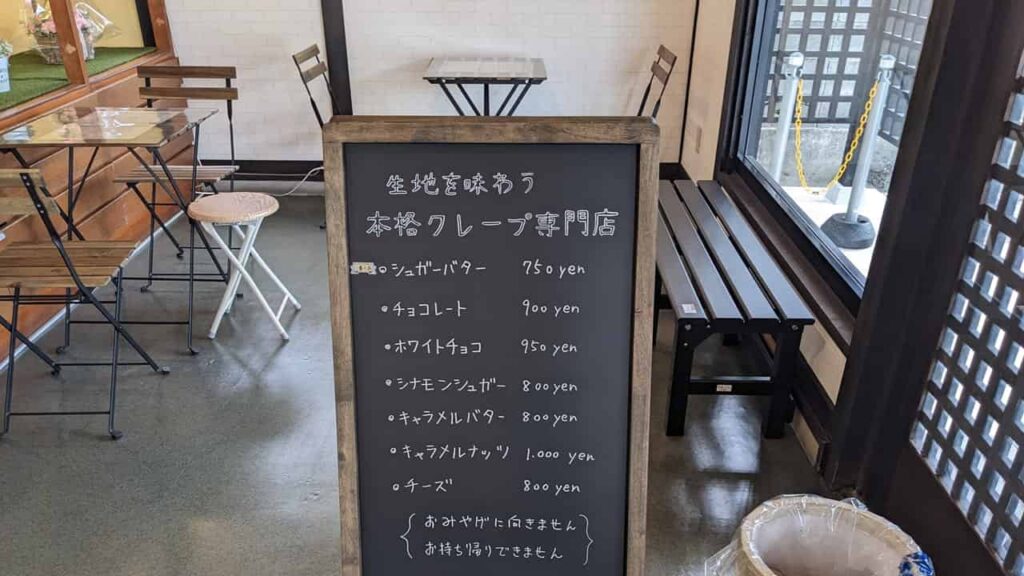 生地を味わう
本格クレープ専門店
シュガーバター 750 yen
チョコレート 900 yen
ホワイトチョコ 950 yen
シナモンシュガー 800 yen
キャラメルバター 800 yen
キャラメルナッツ 1.000 yen
チーズ 800 yen
おみやげに向きません
お持ち帰りできません